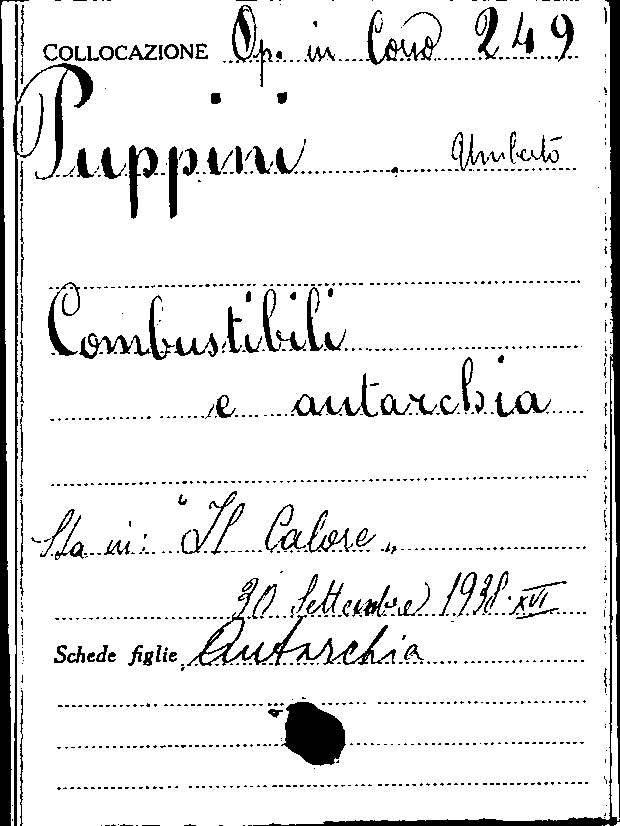 COLLOCAZIONE Op. in Corso 249
Puppini . Umberto
Combustibili
e autarchia
Sta in: "Il Calore„
30 Settembre 1938·XVI
Schede figlie Autarchia